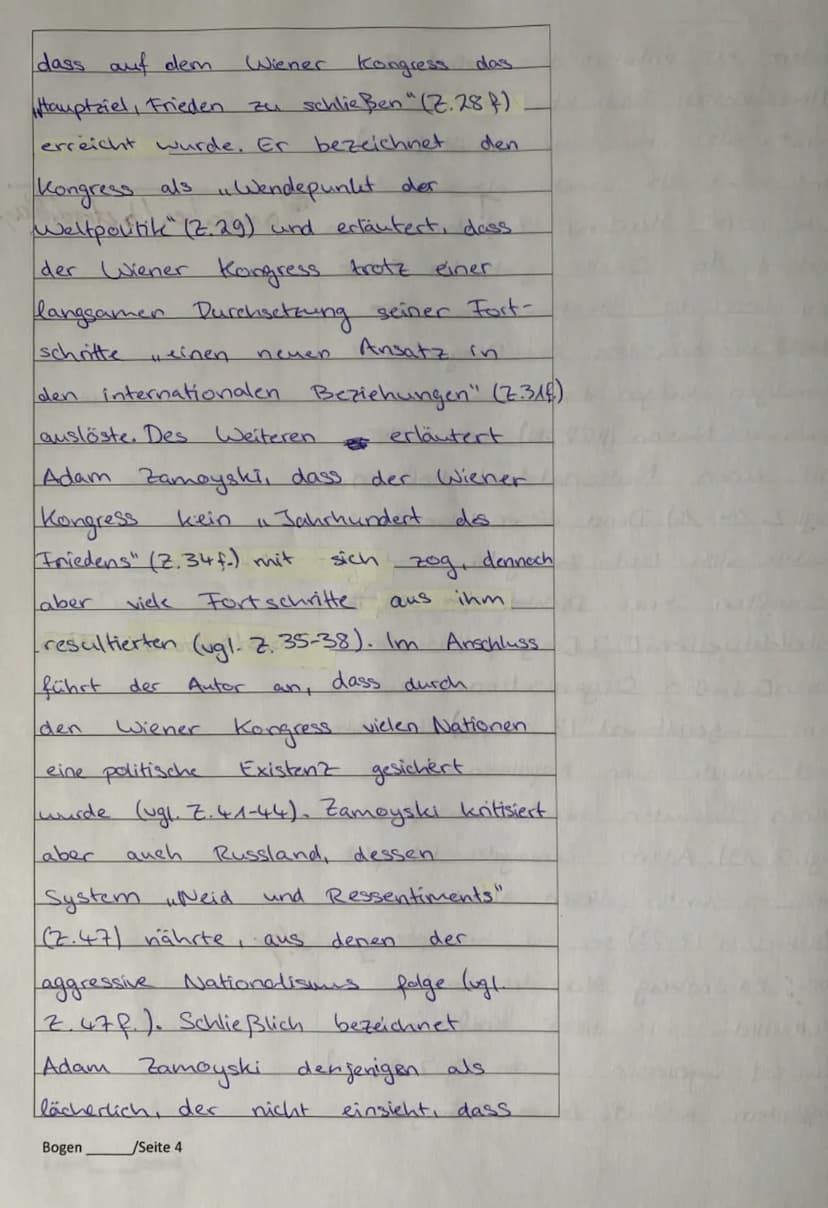 dass auf dem Wiener Kongress das
„Hauptziel, Frieden zu schließen" (Z.28 f)
erreicht wurde. Er bezeichnet den
Kongress als „Wendepunkt der
Weltpolitik" (Z.29) und erläutert, dass
der Wiener Kongress trotz einer
langsamen Durchsetzung seiner Fort-
schritte „einen neuen Ansatz in
den internationalen Beziehungen" (Z.31f.)
auslöste. Des Weiteren erläutert
Adam Zamoyski, dass der Wiener
Kongress kein „Jahrhundert des
Friedens" (Z.34f.) mit sich zog, dennoch
aber viele Fortschritte aus ihm
resultierten (vgl. Z. 35-38). Im Anschluss
führt der Autor an, dass durch
den Wiener Kongress vielen Nationen
eine politische Existenz gesichert
wurde (vgl. Z.41-44). Zamoyski kritisiert
aber auch Russland, dessen
System „Neid und Ressentiments"
(Z.47) nährte, aus denen der
aggressive Nationalismus folge (vgl.
Z.47f.). Schließlich bezeichnet
Adam Zamoyski denjenigen als
lächerlich, der nicht einsieht, dass
Bogen ______/Seite 4